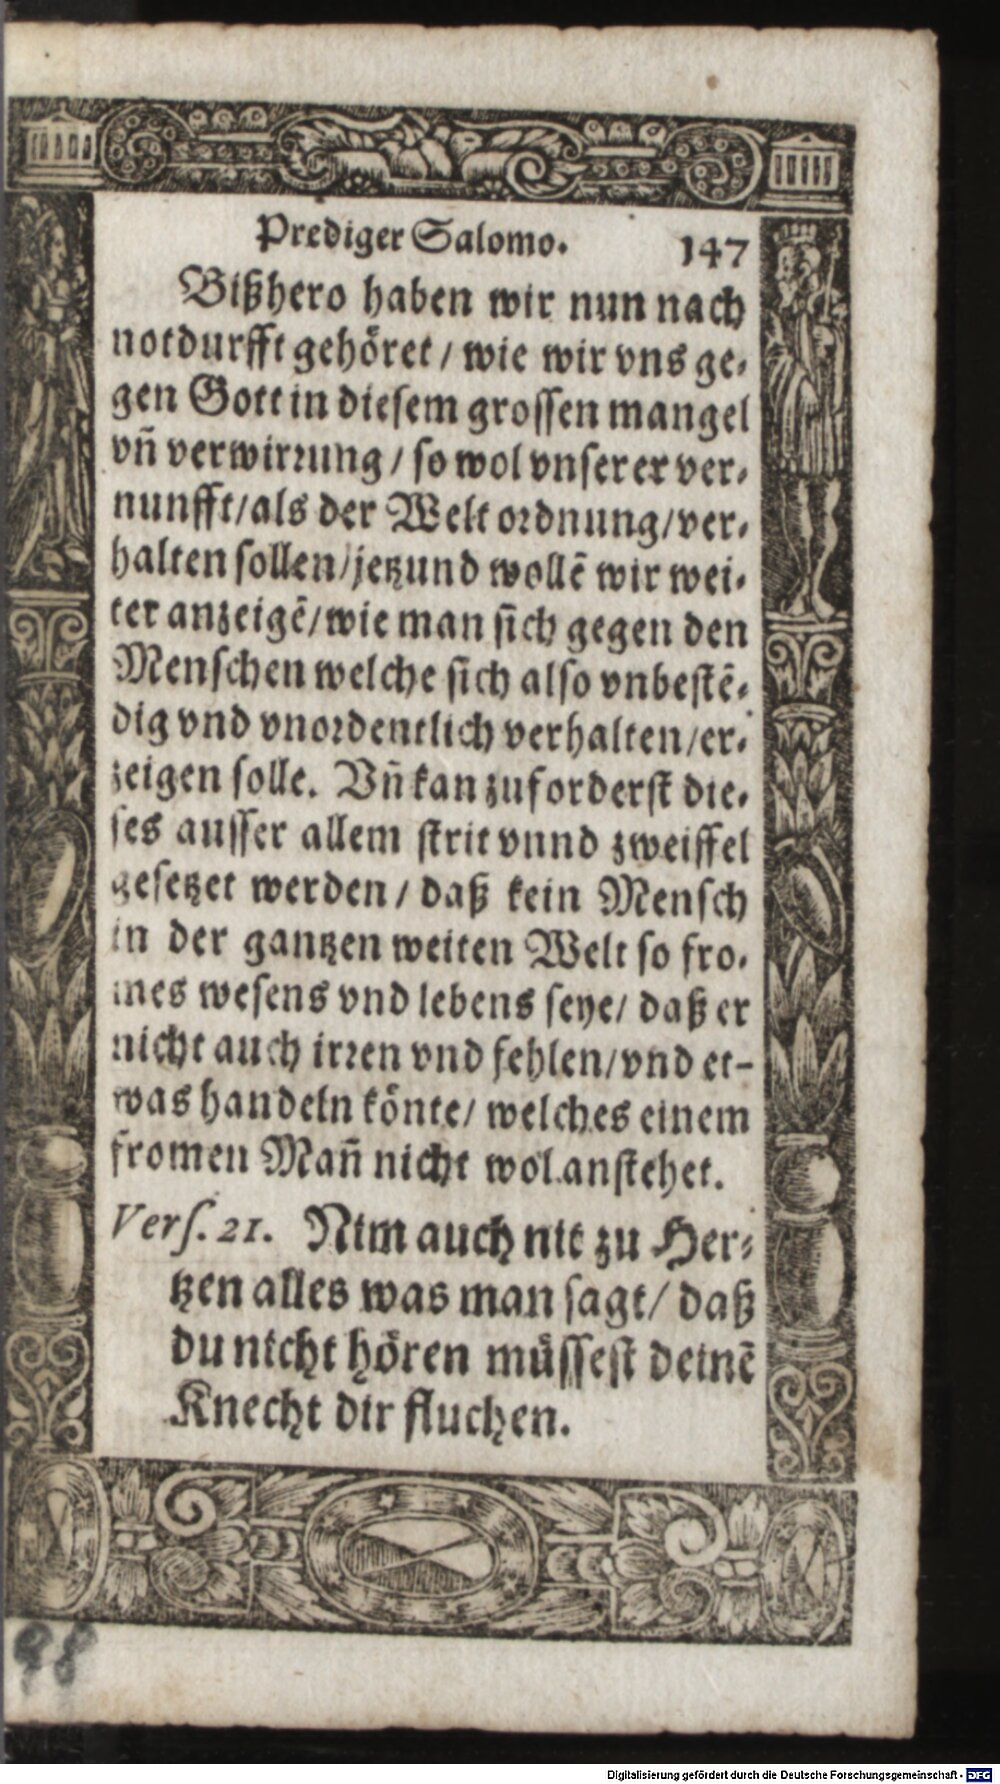 Prediger Salomo. 147
Bißhero haben wir nun nach
notdurfft gehöret / wie wir vns ge-
gen Gott in diesem grossen mangel
vñ verwirrung / so wol vnserer ver-
nunfft/als der Welt ordnung/ver-
halten sollen/jetzund wollẽ wir wei-
ter anzeigẽ/wie man sich gegen den
Menschen welche sich also vnbestẽ-
dig vnd vnordentlich verhalten/er-
zeigen solle. Vñ kan zuforderst die-
ses ausser allem strit vnnd zweiffel
gesetzet werden / daß kein Mensch
in der gantzen weiten Welt so fro-
mes wesens vnd lebens seye/ daß er
nicht auch irren vnd fehlen/vnd et-
was handeln könte/ welches einem
fromen Mañ nicht wol anstehet.
Vers. 21. Nim auch nit zu Her-
tzen alles was man sagt/ daß
du nicht hören müssest deinẽ
Knecht dir fluchen.
98
Digitalisierung gefördert durch die Deutsche Forschungsgemeinschaft - DFG